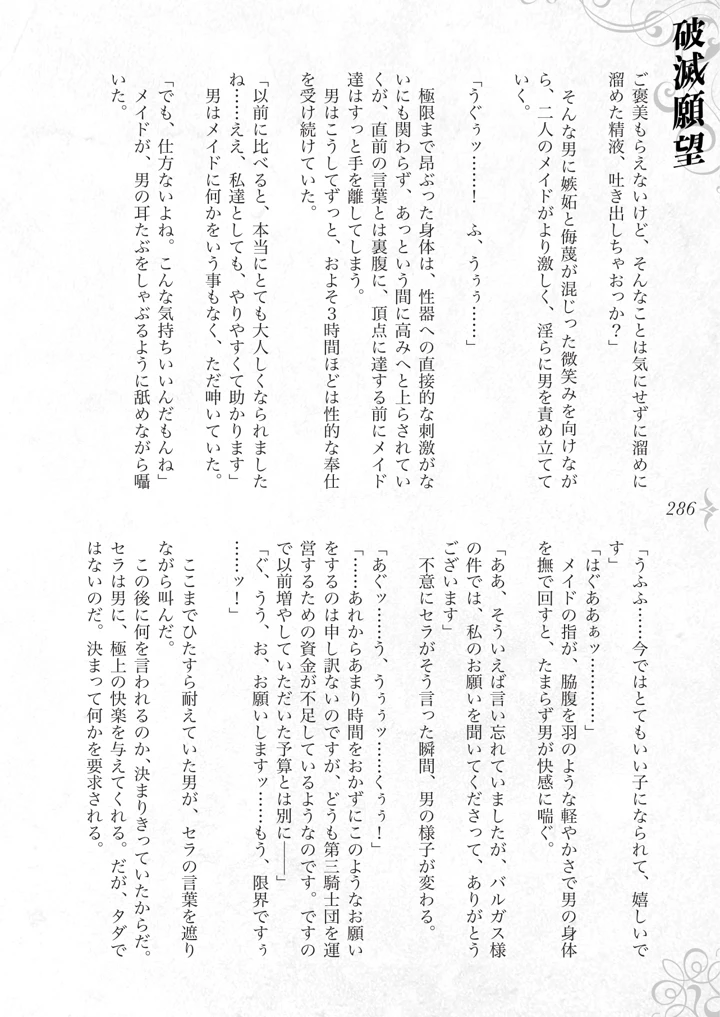 破滅願望
ご褒美もらえないけど、そんなことは気にせずに溜めに
溜めた精液、吐き出しちゃおっか？」
　そんな男に嫉妬と侮蔑が混じった微笑みを向けなが
ら、二人のメイドがより激しく、淫らに男を責め立てて
いく。
「うぐぅッ……！　ふ、うぅぅ……」
　極限まで昂ぶった身体は、性器への直接的な刺激がな
いにも関わらず、あっという間に高みへと上らされてい
くが、直前の言葉とは裏腹に、頂点に達する前にメイド
達はすっと手を離してしまう。
　男はこうしてずっと、およそ３時間ほどは性的な奉仕
を受け続けていた。
「以前に比べると、本当にとても大人しくなられました
ね……ええ、私達としても、やりやすくて助かります」
　男はメイドに何かをいう事もなく、ただ呻いていた。
「でも、仕方ないよね。こんな気持ちいいんだもんね」
　メイドが、男の耳たぶをしゃぶるように舐めながら囁
いた。
286
「うふふ……今ではとてもいい子になられて、嬉しいで
す」
「はぐああぁッ…………」
　メイドの指が、脇腹を羽のような軽やかさで男の身体
を撫で回すと、たまらず男が快感に喘ぐ。
「ああ、そういえば言い忘れていましたが、バルガス様
の件では、私のお願いを聞いてくださって、ありがとう
ございます」
　不意にセラがそう言った瞬間、男の様子が変わる。
「あぐッ……う、うぅぅッ……くぅぅ！」
「……あれからあまり時間をおかずにこのようなお願い
をするのは申し訳ないのですが、どうも第三騎士団を運
営するための資金が不足しているようなのです。ですの
で以前増やしていただいた予算とは別に――」
「ぐ、うう、お、お願いしますッ……もう、限界ですぅ
……ッ！」
　ここまでひたすら耐えていた男が、セラの言葉を遮り
ながら叫んだ。
　この後に何を言われるのか、決まりきっていたからだ。
セラは男に、極上の快楽を与えてくれる。だが、タダで
はないのだ。決まって何かを要求される。